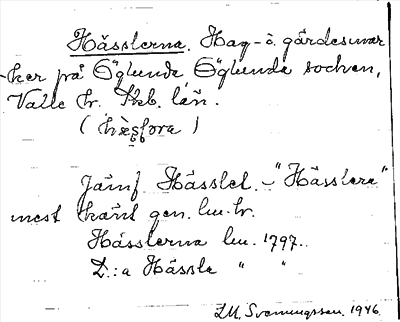 Hässlerna. Hag- o. gärdesmar
-ker på Öglunda Öglunda socken,
Valle hr. Skb. län.
Jämf. Hässlet. - "Hässlera"
mest känt gen. lm. hr.
Hässlerna lm. 1797.
D:a Hässle " "
Svenningsson. 1946